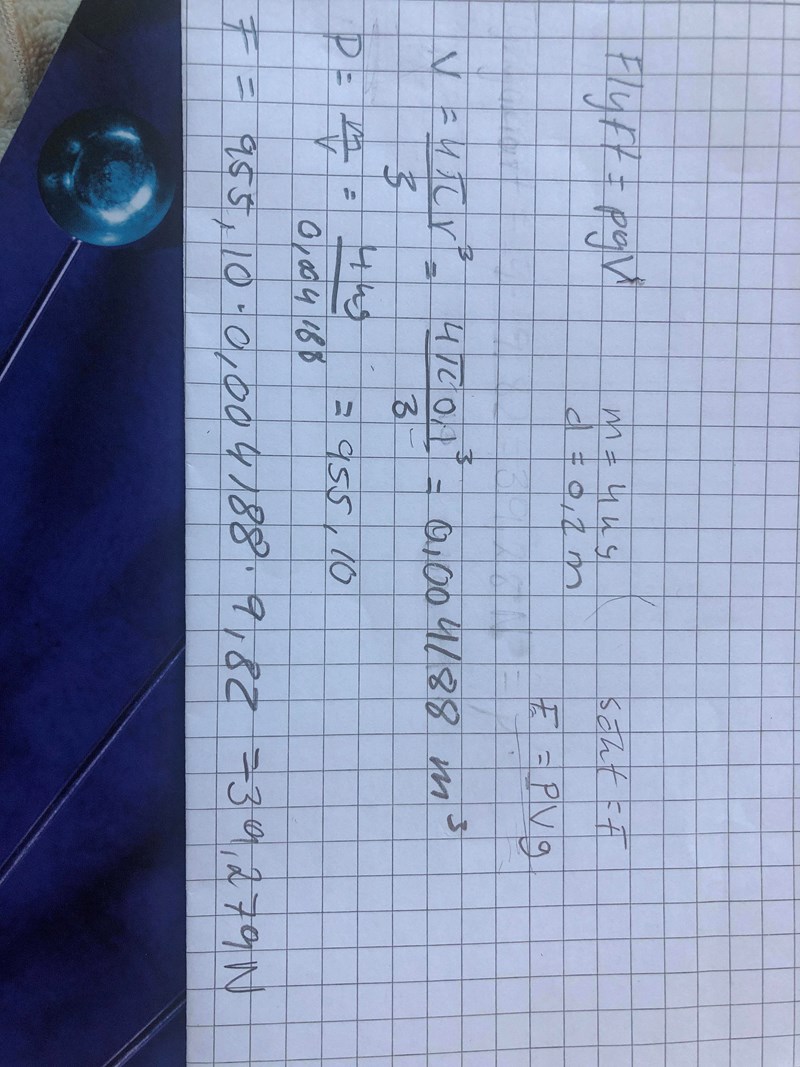 Flyft = ρgV
m = 4 kg
d = 0,2 m
sökt = F
F = ρVg
V = 4πr³/3 = 4π0,1³/3 = 0,004188 m³
ρ = m/V = 4 kg/0,004188 = 955,10
F = 955,10·0,004188·9,82 = 39,279N